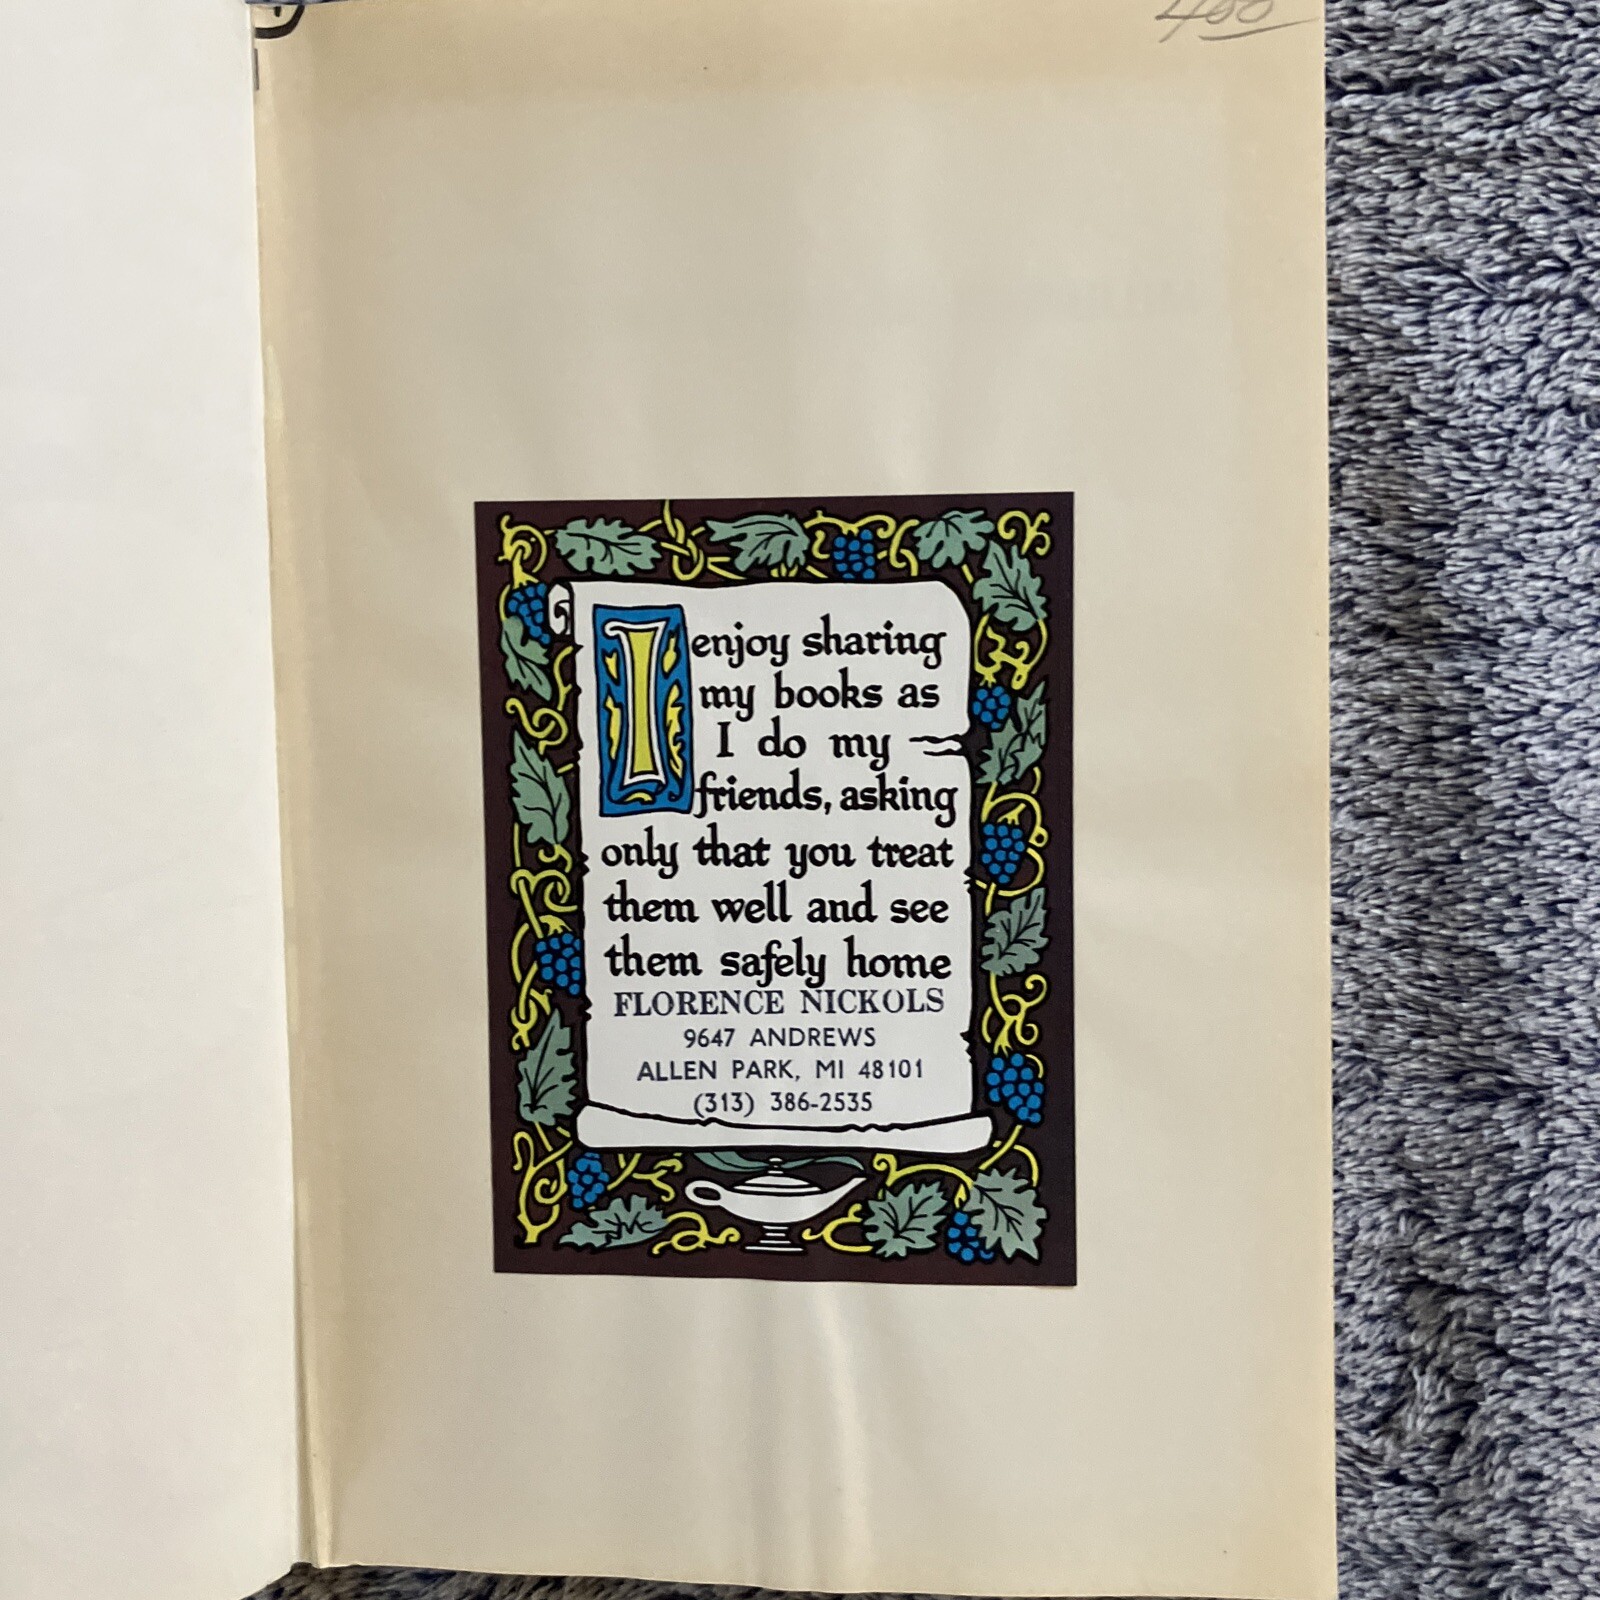 400
I enjoy sharing
my books as
I do my
friends, asking
only that you treat
them well and see
them safely home
FLORENCE NICKOLS
9647 ANDREWS
ALLEN PARK, MI 48101
(313) 386-2535